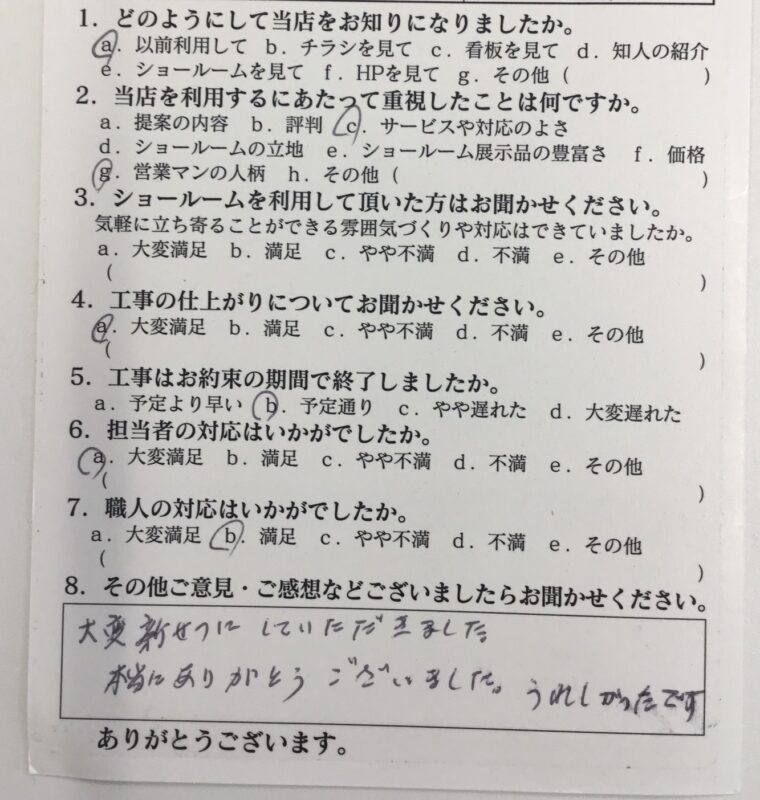 1．どのようにして当店をお知りになりましたか。
a．以前利用して b．チラシを見て c．看板を見て d．知人の紹介
e．ショールームを見て f．HPを見て g．その他（ ）
2．当店を利用するにあたって重視したことは何ですか。
a．提案の内容 b．評判 c．サービスや対応のよさ
d．ショールームの立地 e．ショールーム展示品の豊富さ f．価格
g．営業マンの人柄 h．その他（ ）
3．ショールームを利用して頂いた方はお聞かせください。
気軽に立ち寄ることができる雰囲気づくりや対応はできていましたか。
a．大変満足 b．満足 c．やや不満 d．不満 e．その他
（ ）
4．工事の仕上がりについてお聞かせください。
a．大変満足 b．満足 c．やや不満 d．不満 e．その他
（ ）
5．工事はお約束の期間で終了しましたか。
a．予定より早い b．予定通り c．やや遅れた d．大変遅れた
6．担当者の対応はいかがでしたか。
a．大変満足 b．満足 c．やや不満 d．不満 e．その他
（ ）
7．職人の対応はいかがでしたか。
a．大変満足 b．満足 c．やや不満 d．不満 e．その他
（ ）
8．その他ご意見・ご感想などございましたらお聞かせください。
大変新せつにしていただきました
本当にありがとうございました。うれしかったです
ありがとうございます。